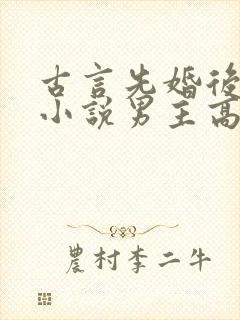 古言先婚後
小說男主高
農村李二牛